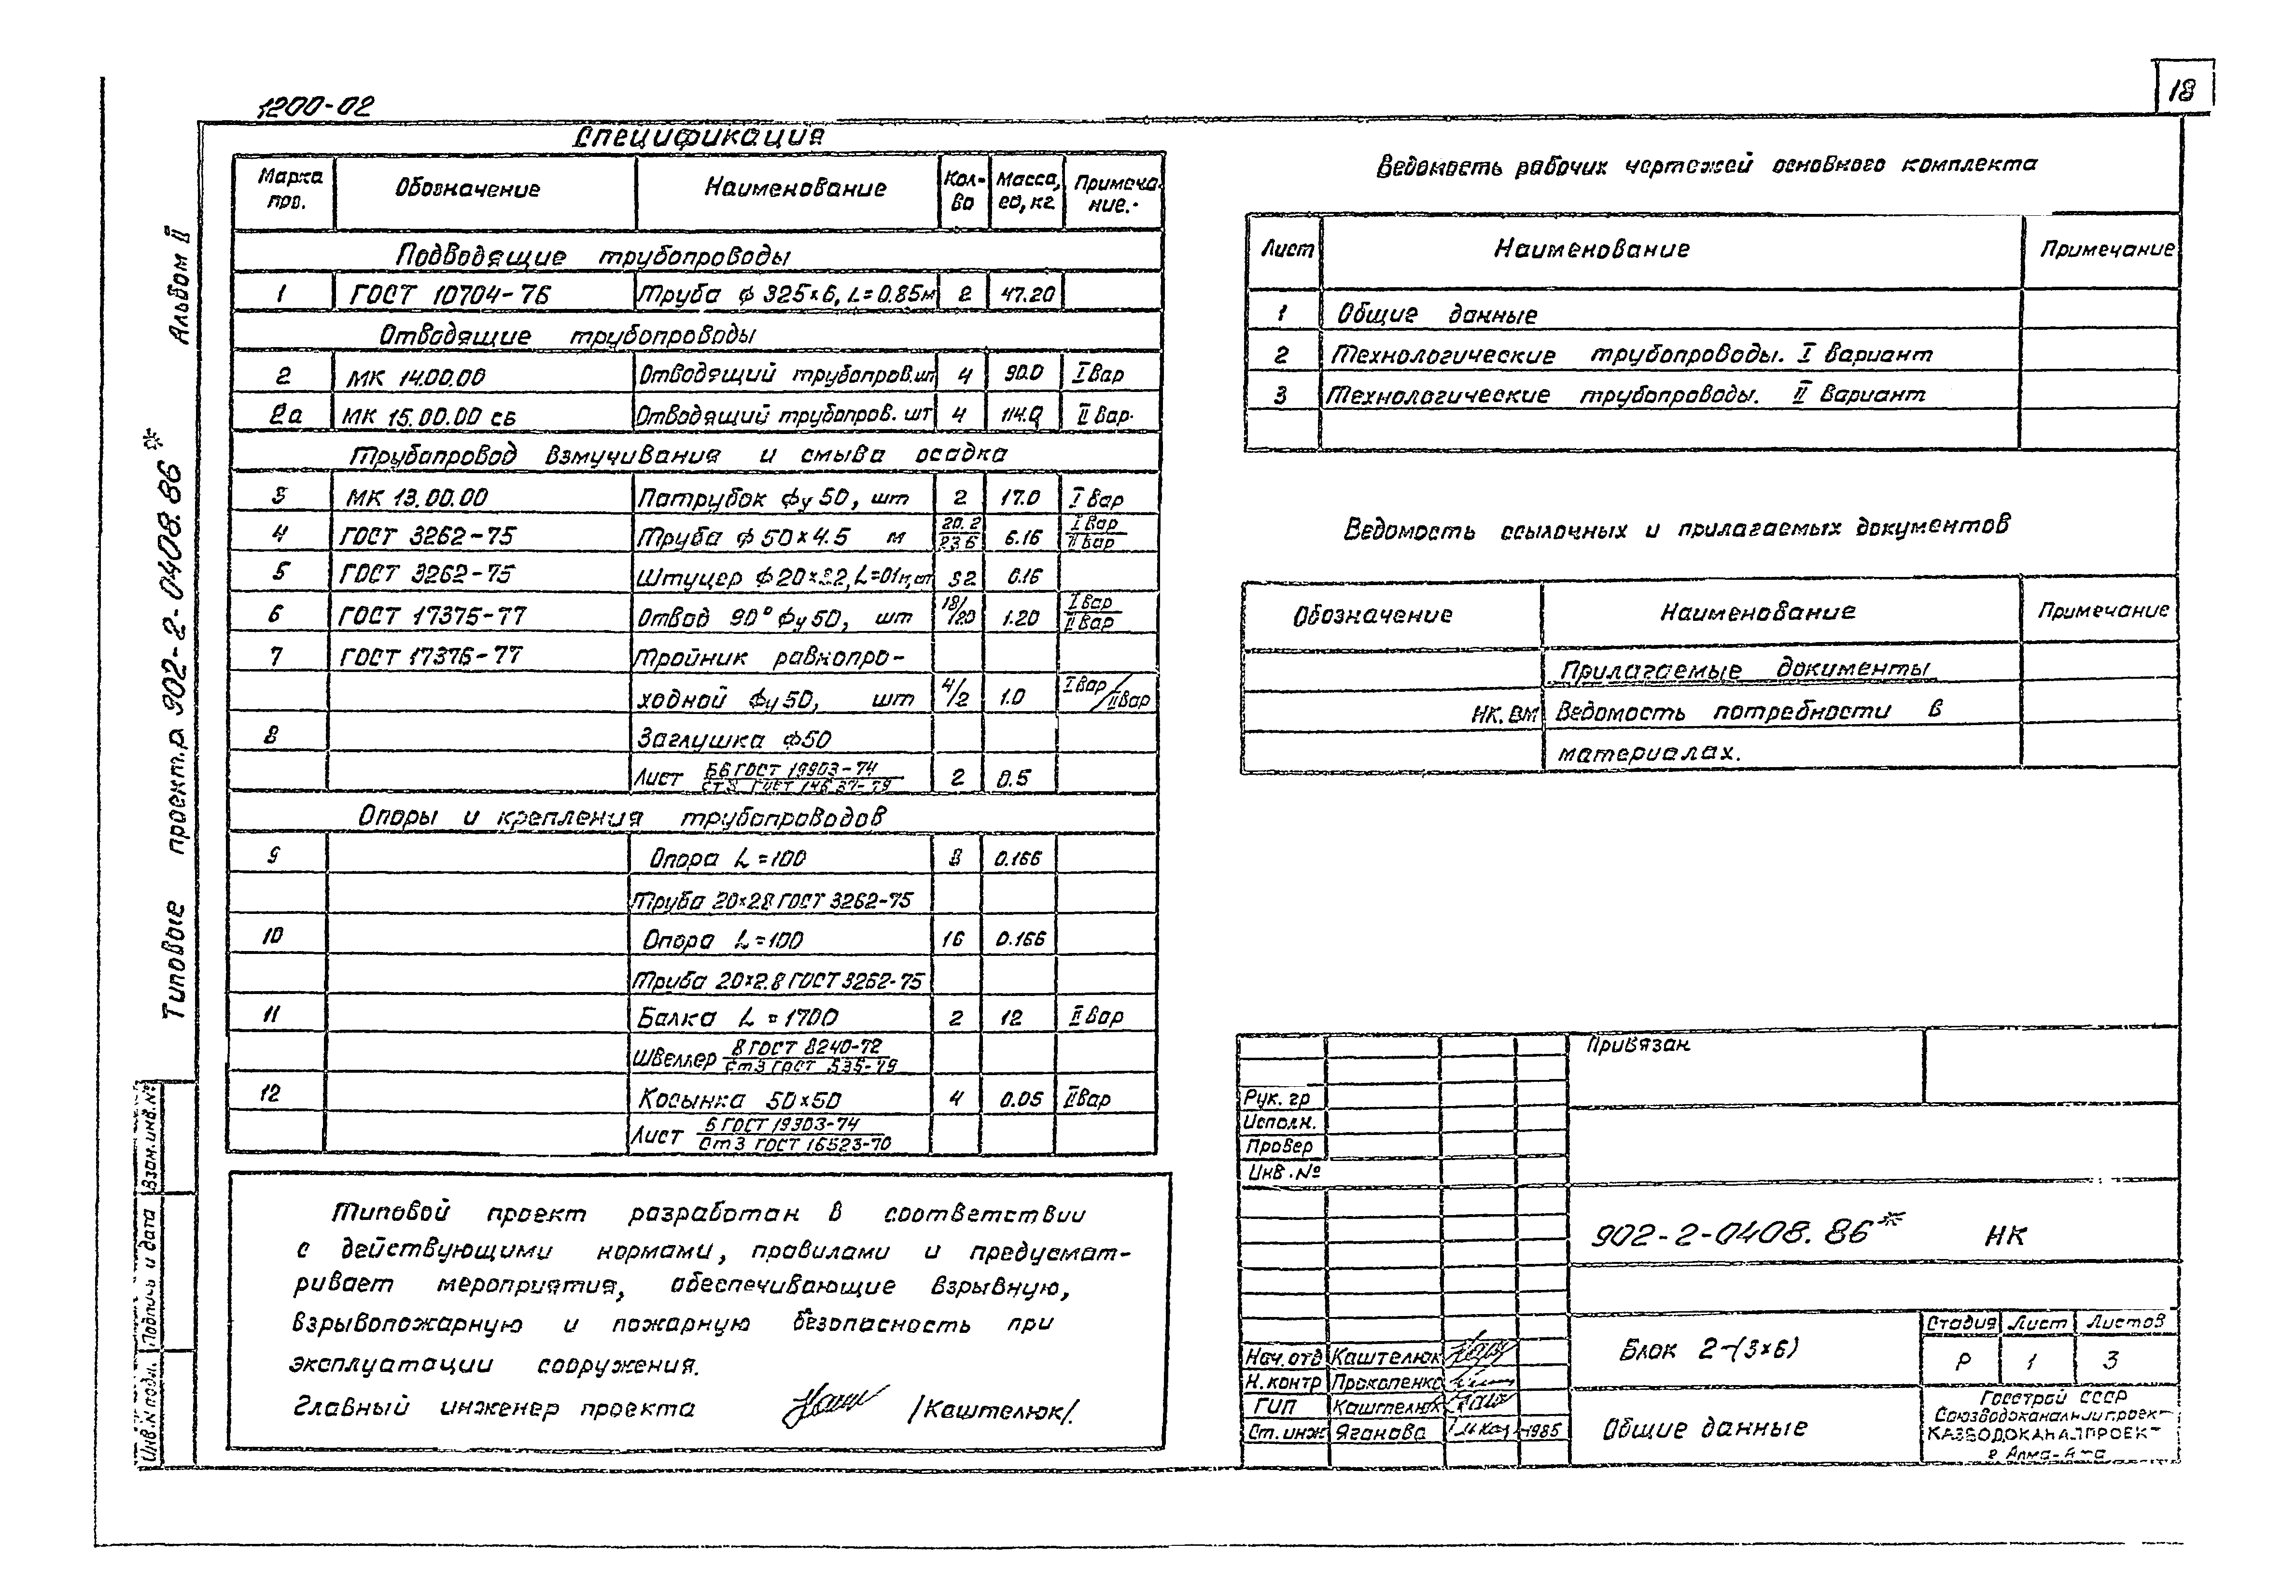 18
1200-02
Спецификация
Марка поз. Обозначение Наименование Кол-во Масса, ед, кг Примеча-ние.
Подводящие трубопроводы
1 ГОСТ 10704-76 Труба ф 325×6, L=0.85м 2 47.20
Отводящие трубопроводы
2 МК 14.00.00 Отводящий трубопров.шт 4 90.0 I вар
2а МК 15.00.00 СБ Отводящий трубопров. шт 4 114.0 II вар.
Трубопровод взмучивания и смыва осадка
3 МК 13.00.00 Патрубок фу 50, шт 2 17.0 I вар
4 ГОСТ 3262-75 Труба ф 50×4.5 м 20.2/23.6 6.16 I вар/II вар
5 ГОСТ 3262-75 Штуцер ф 20×, L= 32 0.16
6 ГОСТ 17375-77 Отвод 90° фу 50, шт 18/20 1.20 I вар/II вар
7 ГОСТ 17376-77 Тройник равнопро-
ходной фу 50, шт 4/2 1.0 I вар/II вар
8 Заглушка ф50
Лист Б6 ГОСТ 19903-74/Ст3 ГОСТ 14637-79 2 0.5
Опоры и крепления трубопроводов
9 Опора L=100 8 0.166
Труба 20×28 ГОСТ 3262-75
10 Опора L=100 16 0.166
Труба 20×2.8 ГОСТ 3262-75
11 Балка L=1700 2 12 II вар
Швеллер 8 ГОСТ 8240-72/Ст3 ГОСТ 535-79
12 Косынка 50×50 4 0.05 II вар
Лист 6 ГОСТ 19903-74/Ст3 ГОСТ 16523-70
Типовой проект разработан в соответствии
с действующими нормами, правилами и предусмат-
ривает мероприятия, обеспечивающие взрывную,
взрывопожарную и пожарную безопасность при
эксплуатации сооружения.
Главный инженер проекта /Каштелюк/.
Типовые проект.р. 902-2-0408.86* Альбом II
Инв.N подл. Подпись и дата Взам.инв.№
Ведомость рабочих чертежей основного комплекта
Лист Наименование Примечание
1 Общие данные
2 Технологические трубопроводы. I вариант
3 Технологические трубопроводы. II вариант
Ведомость ссылочных и прилагаемых документов
Обозначение Наименование Примечание
Прилагаемые документы
НК.ВМ Ведомость потребности в
материалах.
Привязан
Рук. гр
Исполн.
Провер
Инв.№
902-2-0408.86* НК
Блок 2-(3×6)
Стадия Лист Листов
Р 1 3
Нач.отд Каштелюк
Н.контр Прокопенко
ГИП Каштелюк
Ст.инж Яганова 1985
Общие данные
Госстрой СССР
Союзводоканалниипроект
КАЗВОДОКАНАЛПРОЕКТ
г. Алма-Ата